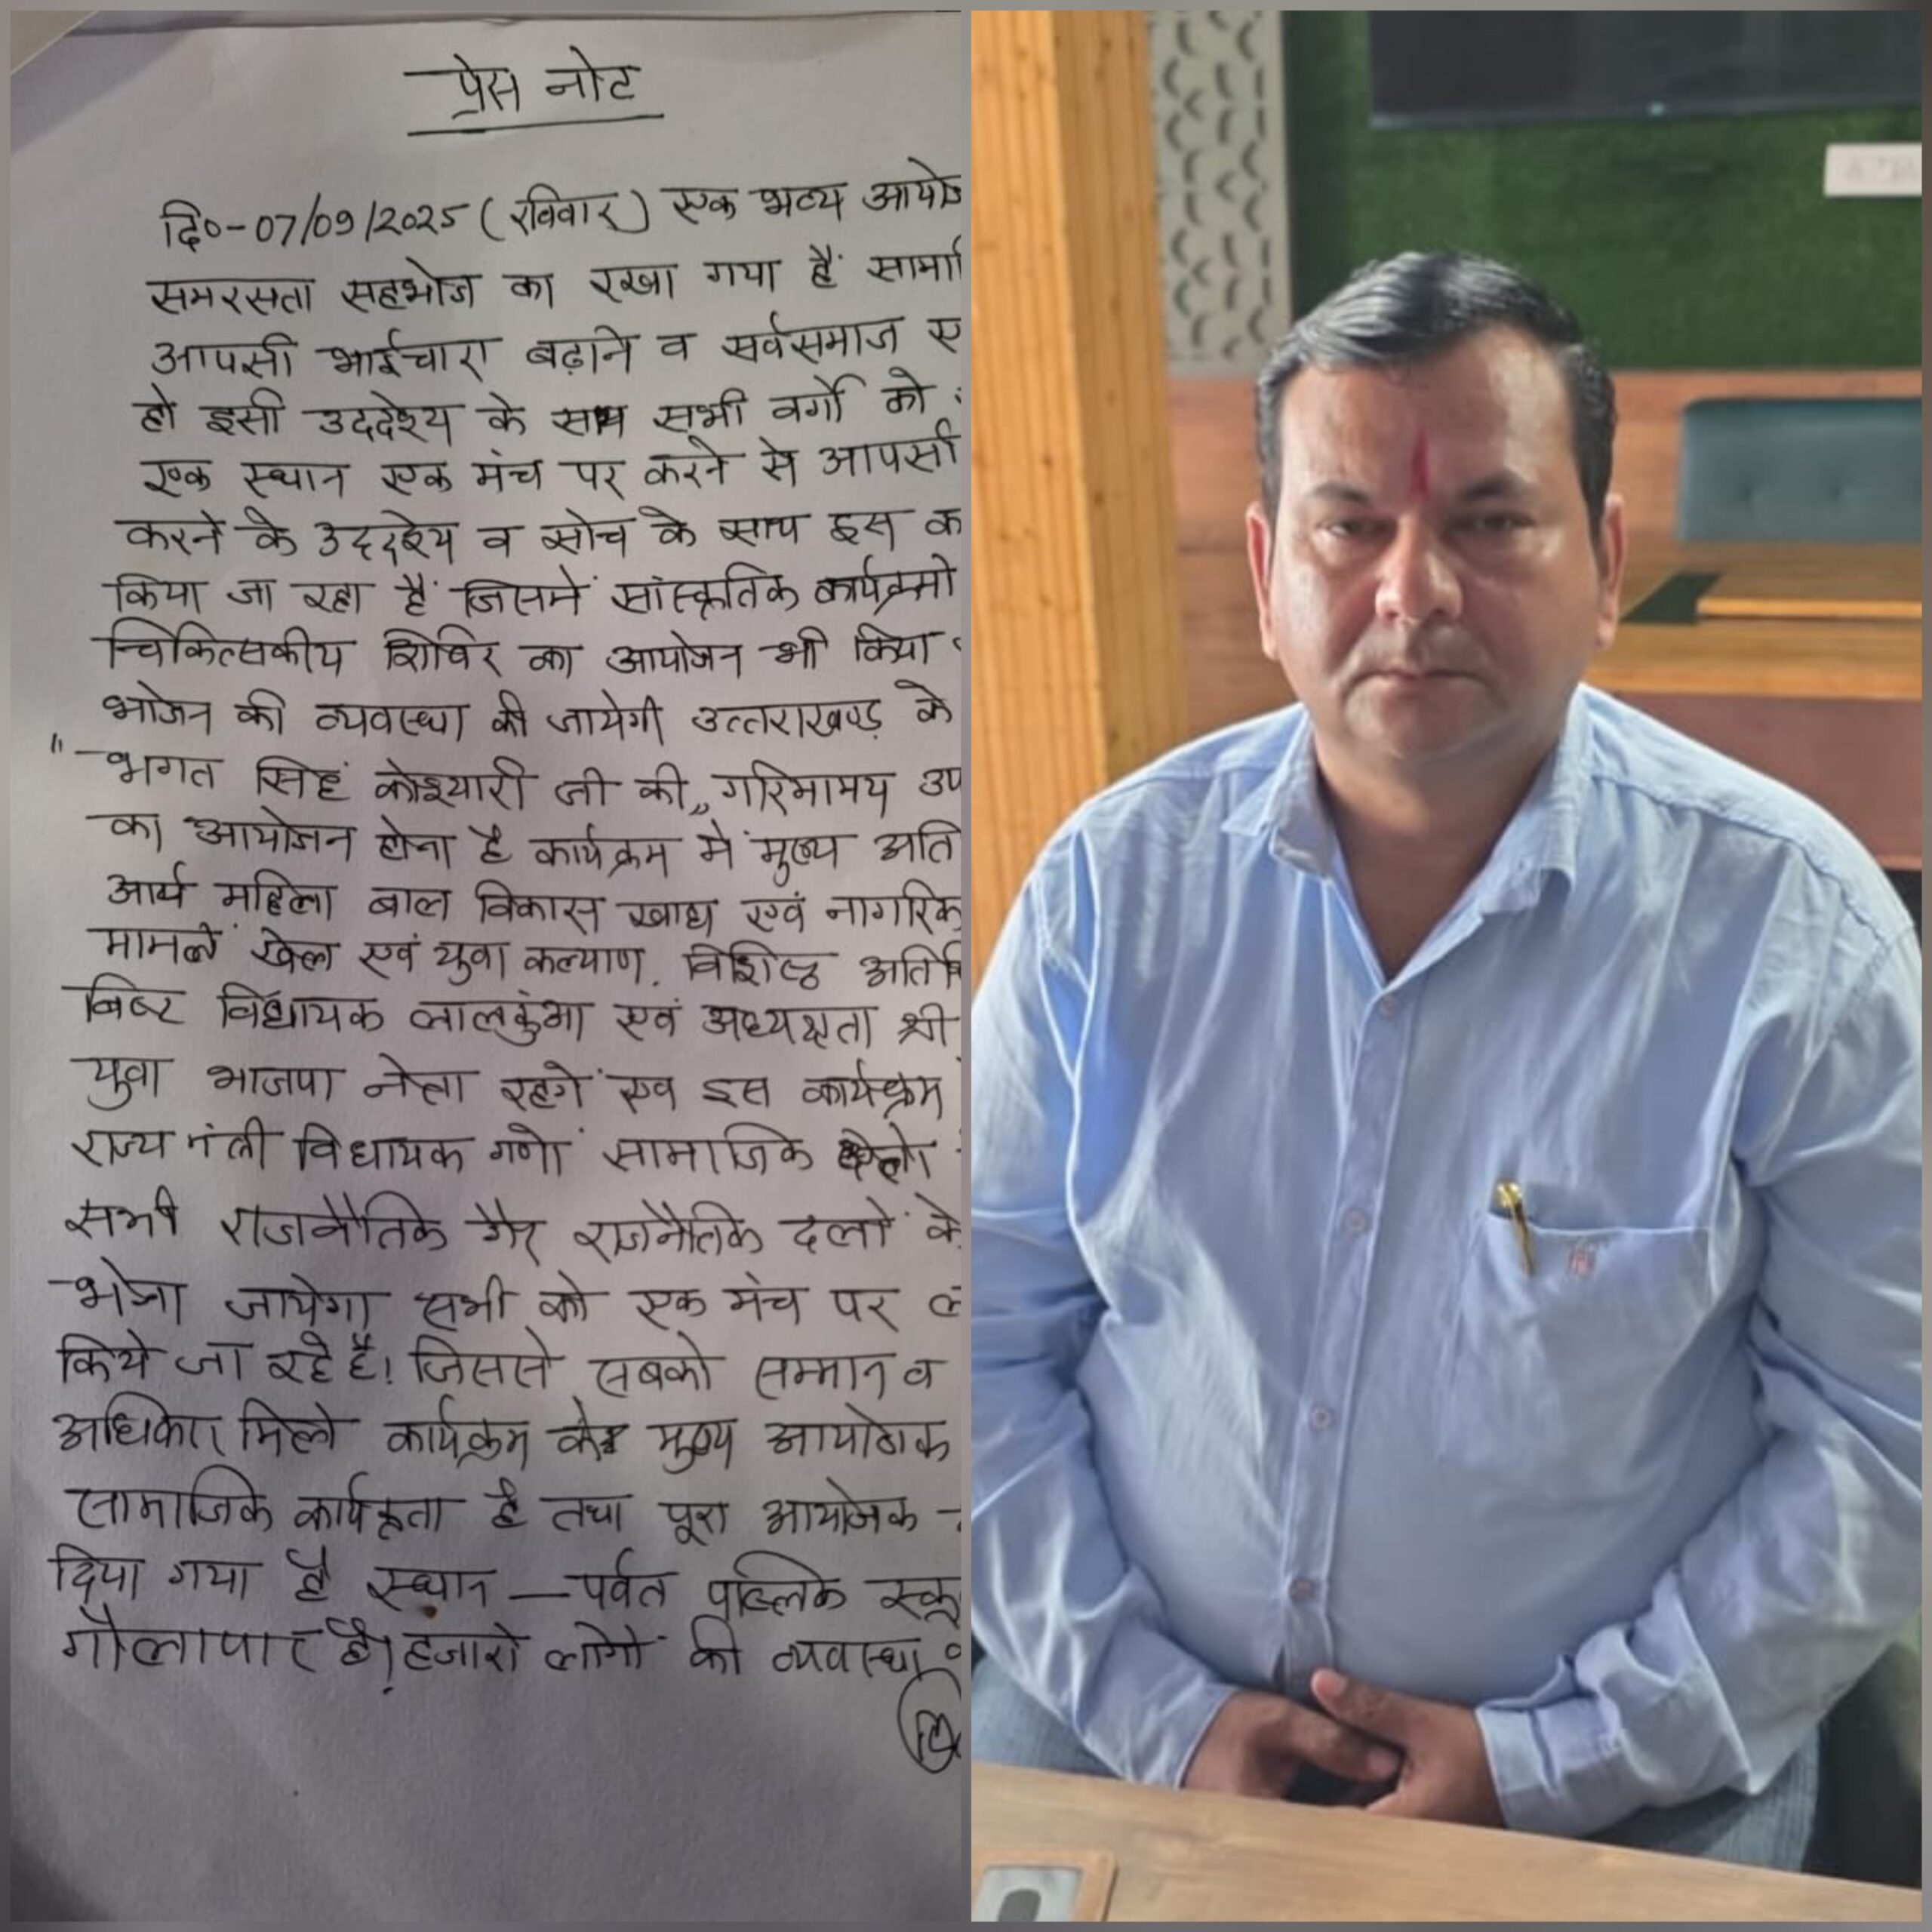 प्रेस नोट
दि०-07/09/2025 (रविवार) एक भव्य आयोज
समरसता सहभोज का रखा गया हैं सामाि
आपसी भाईचारा बढ़ाने व सर्वसमाज ए
हो इसी उददेश्य के साथ सभी वर्गो को
एक स्थान एक मंच पर करने से आपसी
करने के उददेश्य व सोच के साथ इस क
किया जा रहा हैं जिसमें सांस्कृतिक कार्यक्रमो
चिकित्सकीय शिविर का आयोजन भी किया
भोजन की व्यवस्था की जायेगी उत्तराखण्ड़ के
"भगत सिहं कोश्यारी जी की,, गरिमामय उप
का आयोजन होना है कार्यक्रम में मुख्य अति
आर्य महिला बाल विकास खाद्य एवं नागरिक
मामले खेल एवं युवा कल्याण. विशिष्ठ अतिथि
बिष्ट विधायक लालकुंआ एवं अध्यक्षता श्री
युवा भाजपा नेता रहगें एव इस कार्यक्रम
राज्य मंत्री विधायक गणो सामाजिक
सभी राजनैतिक गैर राजनैतिक दलों के
भेजा जायेगा सभी को एक मंच पर ल
किये जा रहे है! जिससे सबको सम्मान व
अधिकार मिले कार्यक्रम के मुख्य आयोजक
सामाजिक कार्यकृता है तथा पूरा आयोजक
दिया गया है स्थान – पर्वत पब्लिक स्कू
गौलापार है! हजारो लोगों की व्यवस्था